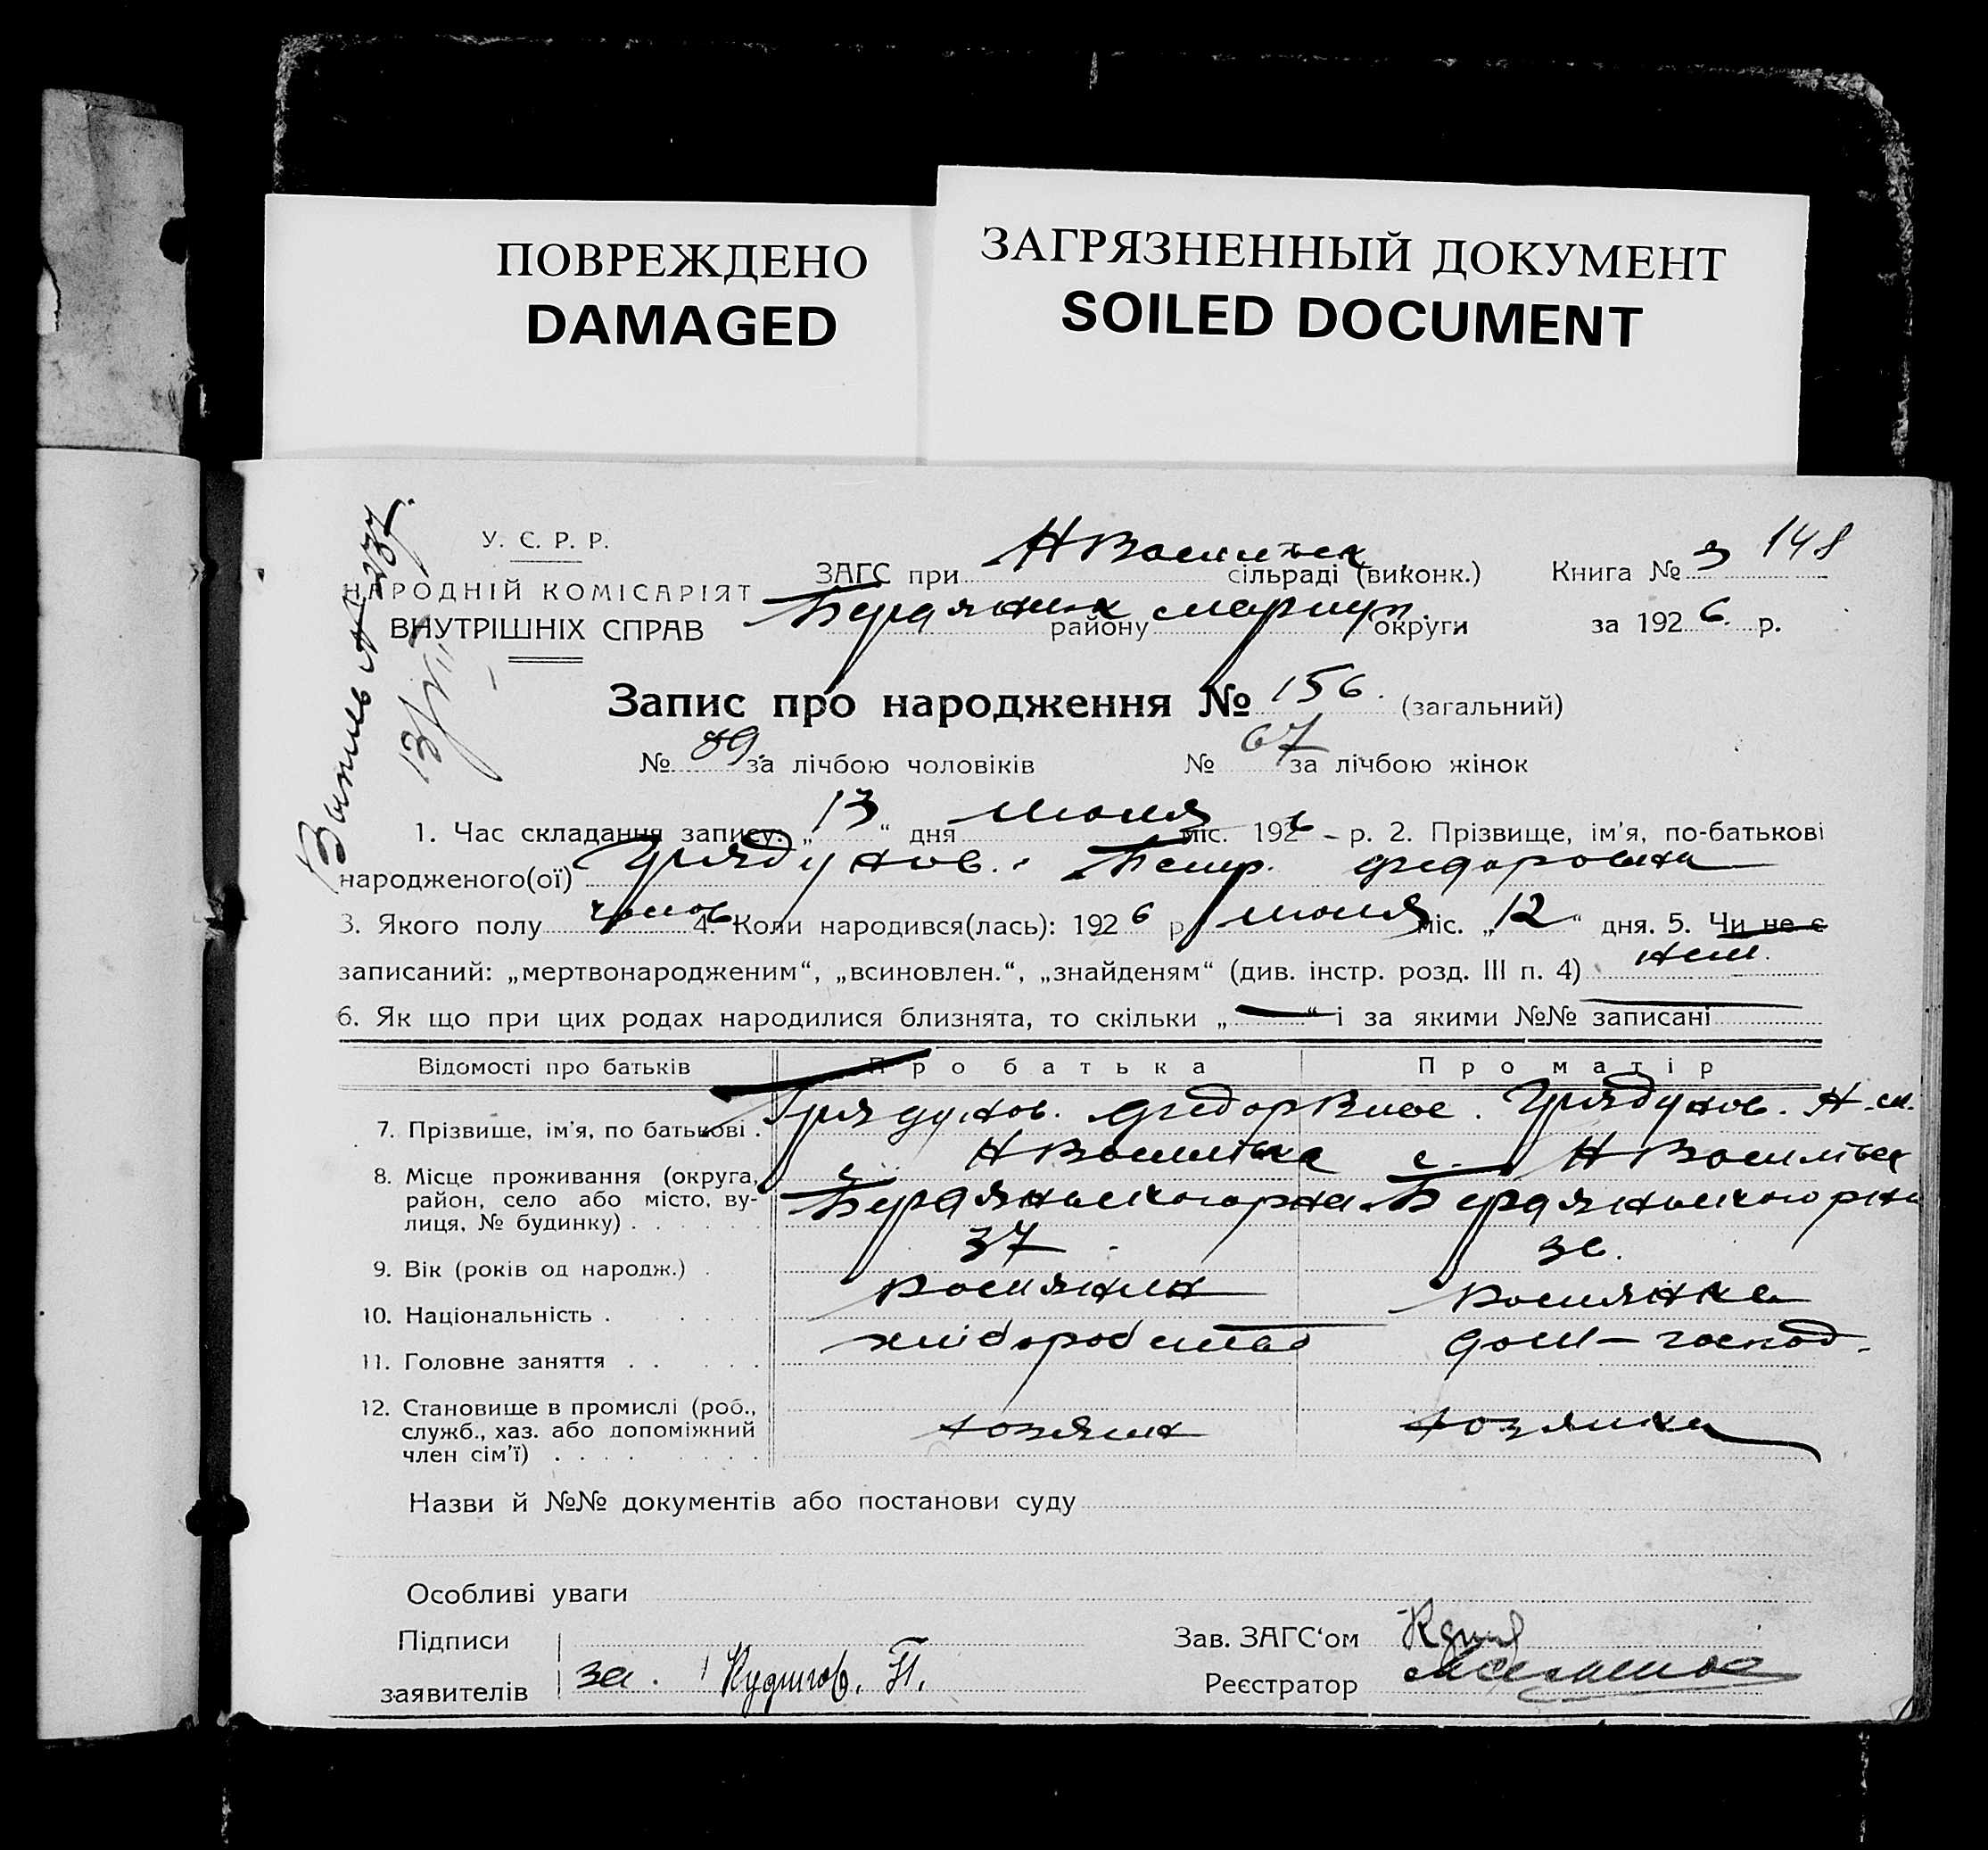 ПОВРЕЖДЕНО
DAMAGED
ЗАГРЯЗНЕННЫЙ ДОКУМЕНТ
SOILED DOCUMENT
У. С. Р. Р.
НАРОДНІЙ КОМІСАРІЯТ
ВНУТРІШНІХ СПРАВ
ЗАГС при Н Васильевк сільраді (виконк.)
Бердянськ району Мариуп. округи
Книга № 3 148
за 1926. р.
Запис про народження № 156. (загальний)
№ 89. за лічбою чоловіків № 67 за лічбою жінок
1. Час складання запису: „13“ дня июля міс. 1926 р. 2. Прізвище, ім’я, по-батькові
народженого(ої) Грядунов. Петр. Федорович
3. Якого полу чолов 4. Коли народився(лась): 1926 р июля міс. „12“ дня. 5. Чи не є
записаний: „мертвонародженим“, „всиновлен.“, „знайденям“ (див. інстр. розд. III п. 4) нет.
6. Як що при цих родах народилися близнята, то скільки „—“ і за якими №№ записані
Відомості про батьків Про батька Про матір
7. Прізвище, ім’я, по батькові . Грядунов. Федор Грядунов.
8. Місце проживання (округа, район, село або місто, вулиця, № будинку) . с. Н Васильевка с. Н Васильевк
Бердянського рна Бердянського рна
9. Вік (років од народж.) . 37 36.
10. Національність . росиянин росиянка
11. Головне заняття . . хлібороб ство дом – господ.
12. Становище в промислі (роб.,
служб., хаз. або допоміжний
член сім’ї) . . . . хозяин хозяика
Назви й №№ документів або постанови суду
Особливі уваги
Підписи
заявителів за.
Зав. ЗАГС‘ом
Реєстратор